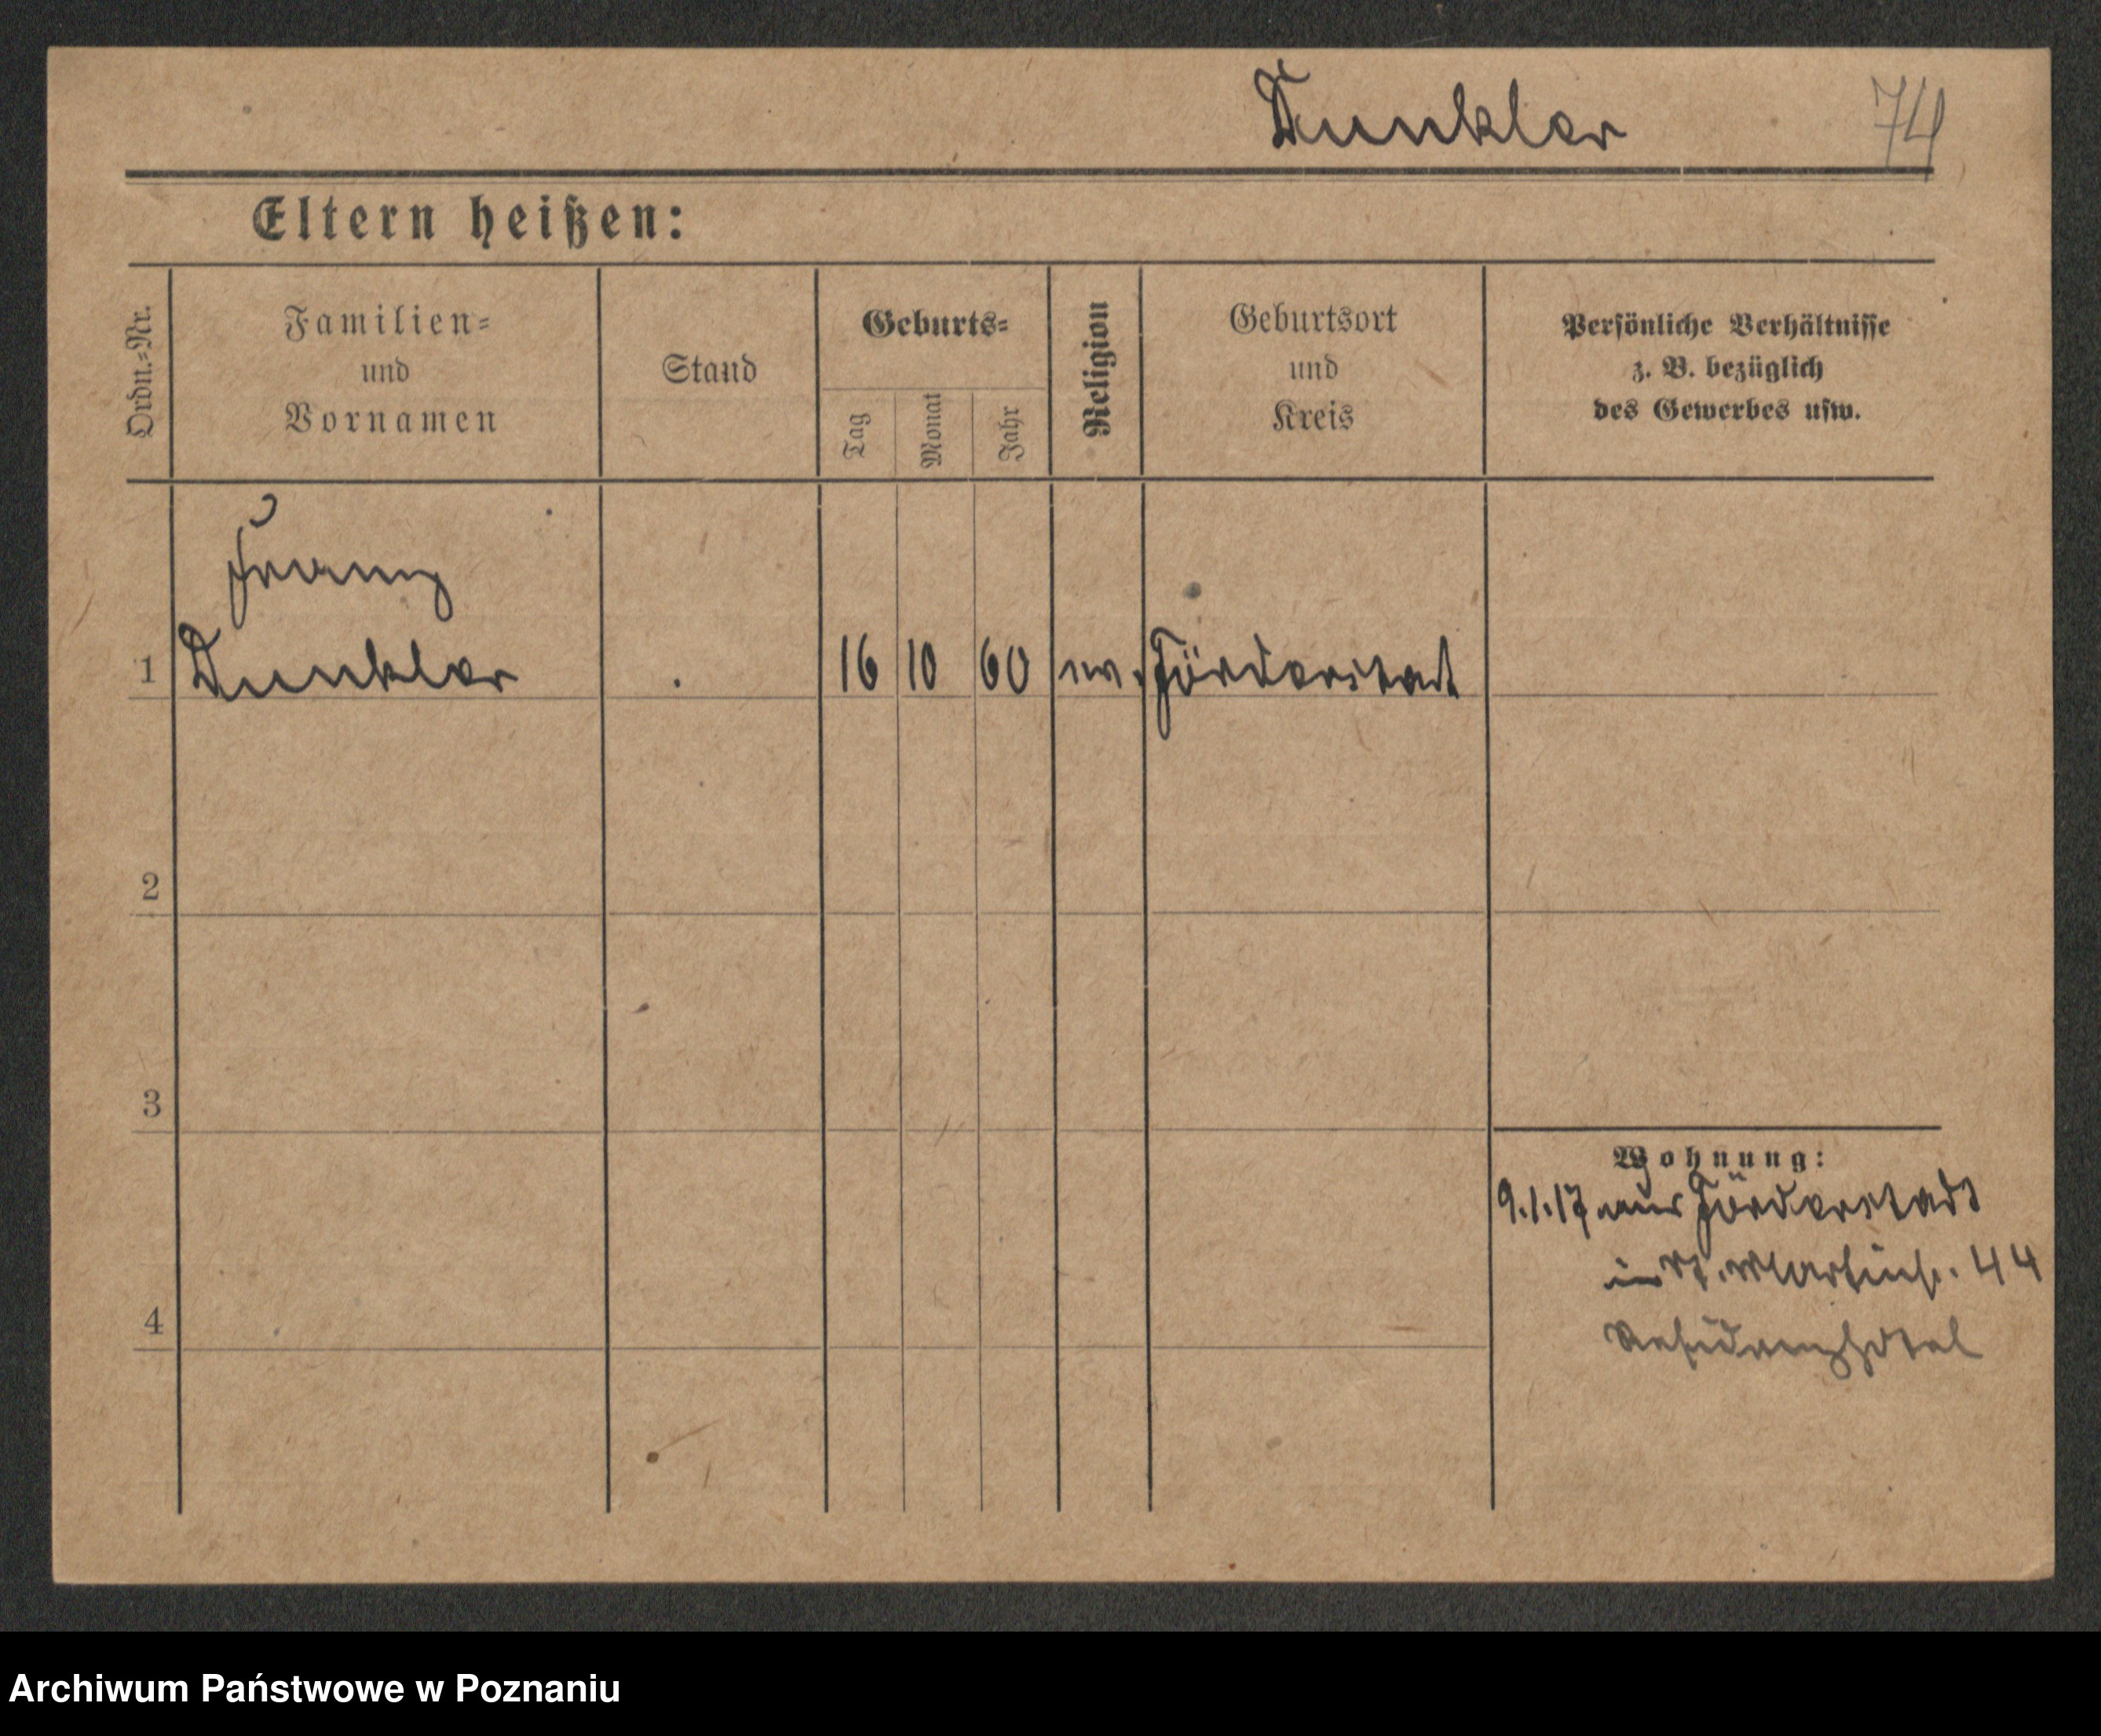 Dunkler 74
Eltern heißen:
Ordn.-Nr.
Familien-
und
Vornamen
Stand
Geburts-
Tag
Monat
Jahr
Religion
Geburtsort
und
Kreis
Persönliche Verhältnisse
z. B. bezüglich
des Gewerbes usw.
Franz
1 Dunkler 16 10 60 ev. Förderstadt
2
3
4
Wohnung:
9.1.17 aus Förderstadt
in St. Martinstr. 44
Residenzhotel
Archiwum Państwowe w Poznaniu